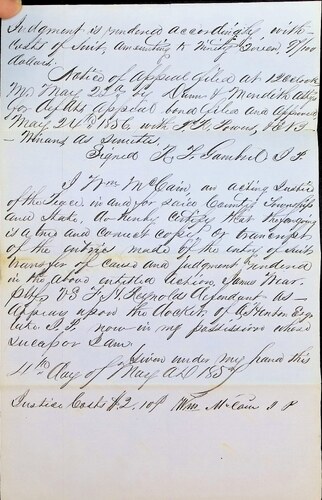 Judgment is rendered accordingly with
costs of Suit, amounting to Ninety Seven 7/100
dollars.
Notice of Appeal filed at 12 oclock
M May 22d by Dunn & Meredith Attys
for Defts Appeal bond filed and approved
May 24th 1856, with
Winans as Sureties
Signed R F Gambert J P
I Wm McCain an acting Justice
of the Peace in and for said County Township
and State, do hereby certify that the foregoing
is a true and correct copy or transcript
of the entries made of the entry of suit
transfer of cause and judgment rendered
in the above entitled action, James Wear
Plff vs F. H. Reynolds defendant as
appears upon the docket of Esq
late J. P. now in my possession whose
sucessor I am.
Given under my hand this
11th day of May AD 1857
Justice Costs $2.10 Wm McCain J P